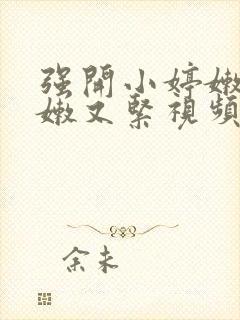 强開小婷嫩
嫩又緊視頻
余未